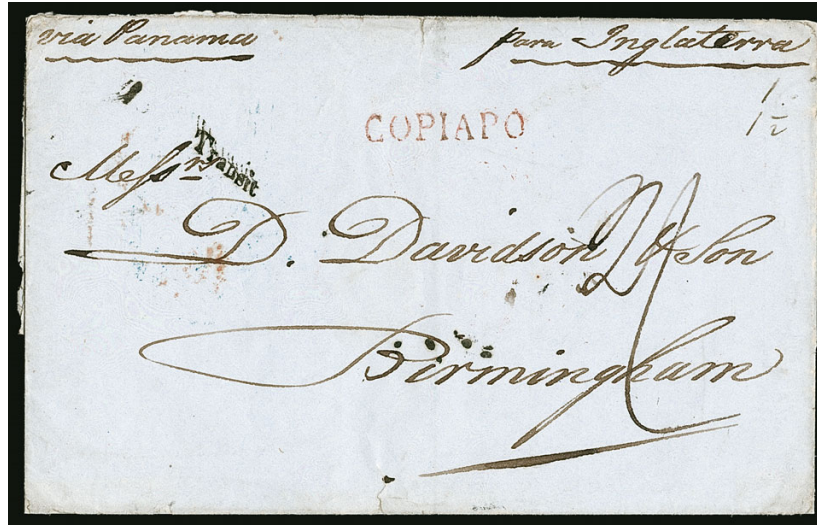 via Panama para Inglaterra
1
1½
COPIAPO
Transit
Messrs
D. Davidson & Son
2/
Birmingham